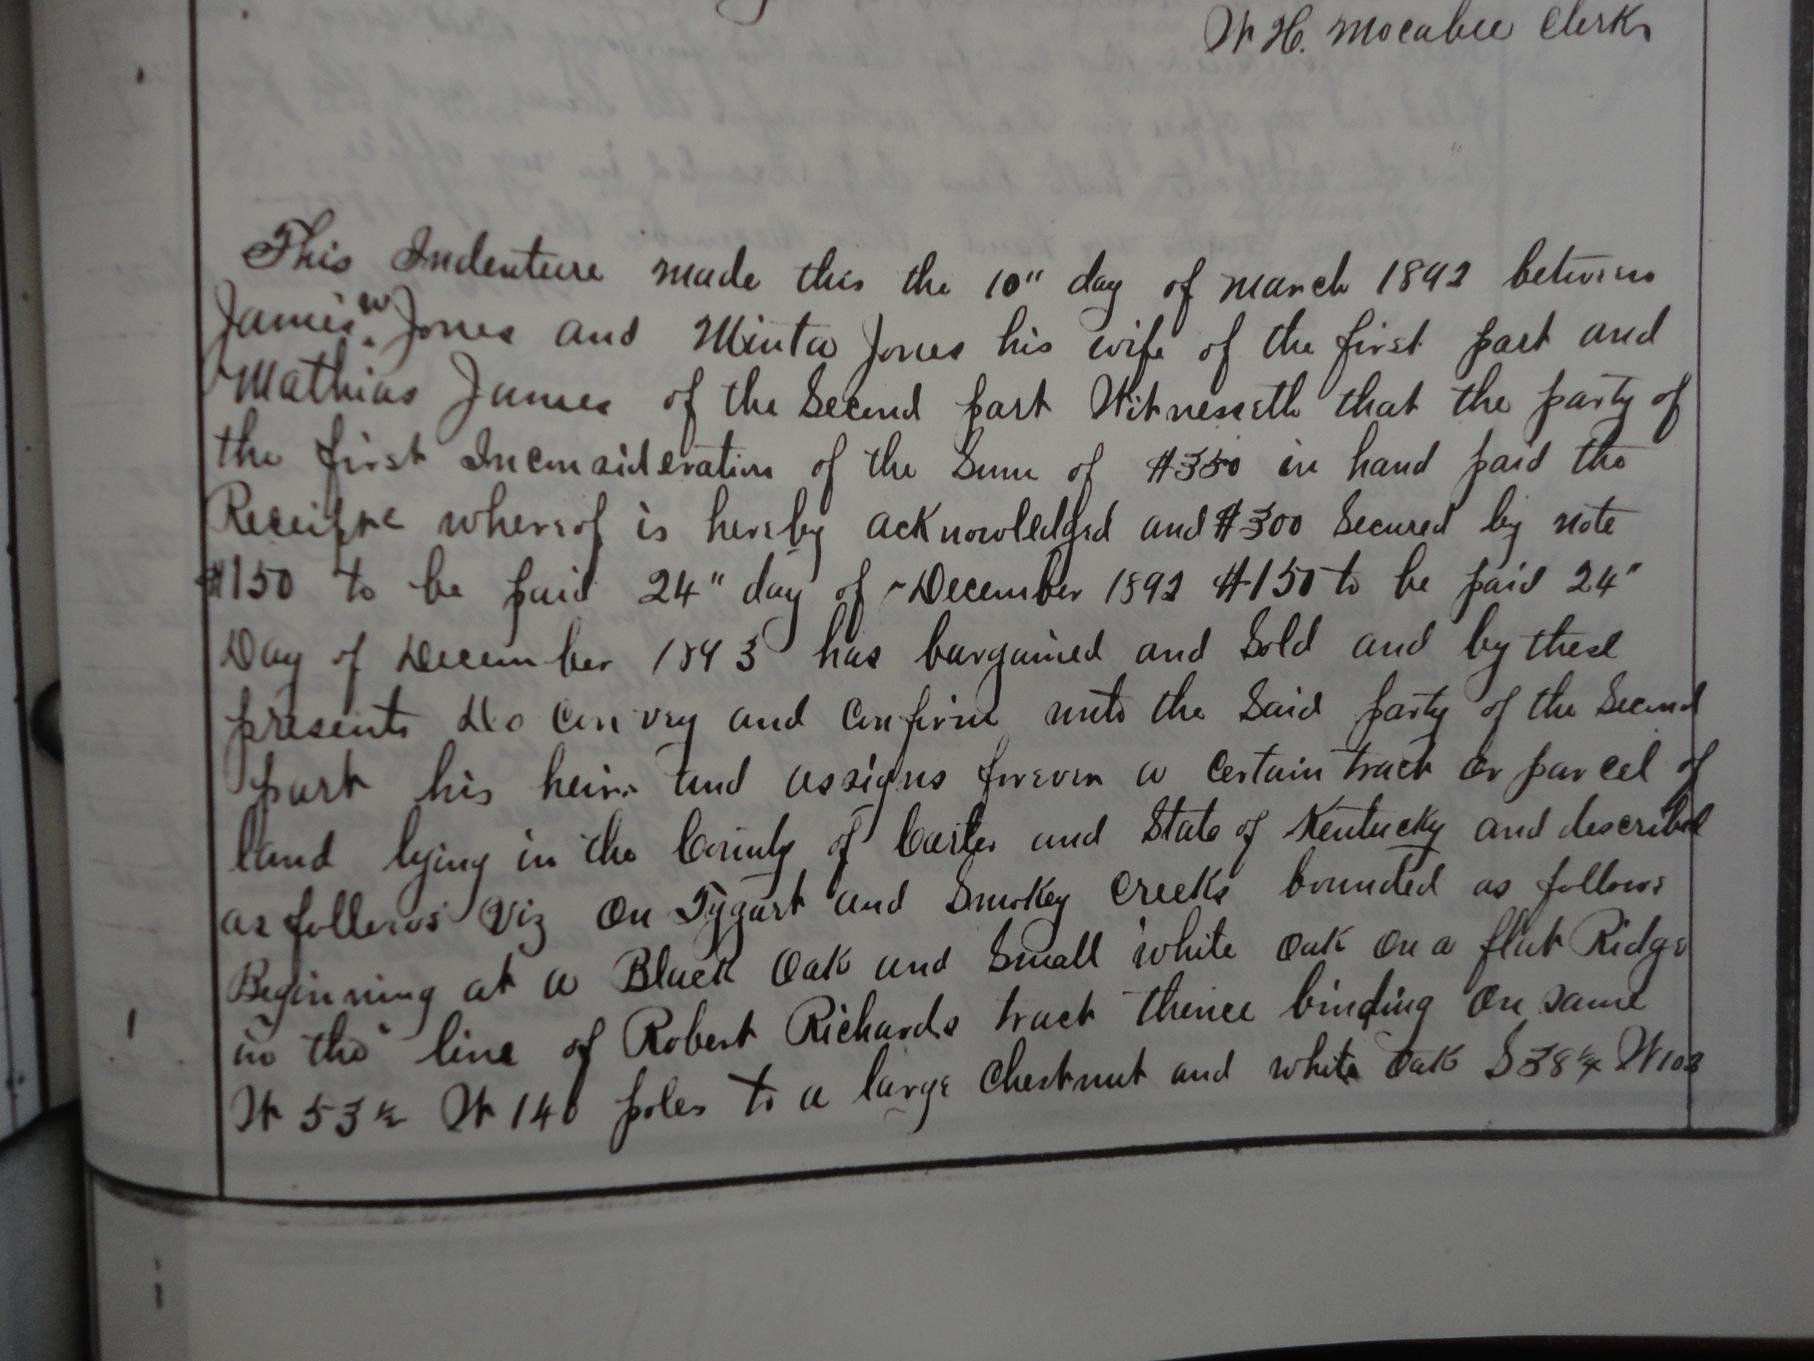 W. H. Mocabee Clerk
This Indenture made this the 10" day of March 1892 between
James W. Jones and Minta Jones his wife of the first part and
Mathias James of the Second part Witnesseth that the party of
the first Inconsideration of the Sum of $350 in hand paid the
Receipt whereof is hereby acknowledged and $300 Secured by note
$150 to be paid 24" day of December 1892 $150 to be paid 24"
Day of December 1893 has bargained and Sold and by these
presents Do Convey and Confirm unto the Said party of the Second
part his heirs and assigns forever a Certain track or parcel of
land lying in the County of Carter and State of Kentucky and described
as follows Viz On Tygart and Smokey Creeks bounded as follows
Beginning at a Black Oak and Small white Oak On a flat Ridge
in the line of Robert Richards track thence binding On Same
53½ W 140 poles to a large Chestnut and white Oak S 38¼ W 102